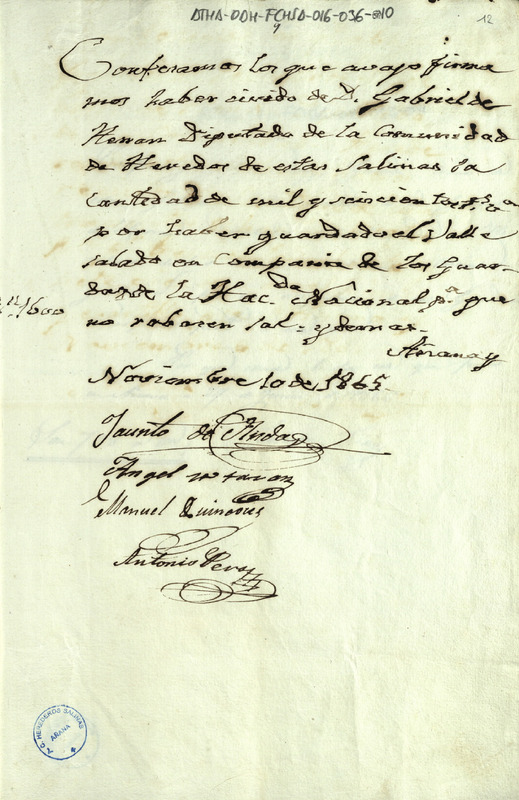 ATHA-DAH-FCHSA-016-036-010
9
12
Confesamos los que avajo firma
mos haber recivido de D. Gabriel de
Herran Diputado de la Comunidad
de Herederos de estas Salinas la
Cantidad de mil y seiscientos rs
por haber guardado el Valle
salado en Compania de los Guar
das de la Hacda Nacional pa que
no robasen sal y demas.
rs 1600
Añana y
Noviembre 10 de 1865
Jacinto de Anda
Angel
Manuel Quincoces
Antonio Perez
C. HEREDEROS SALINAS
AÑANA